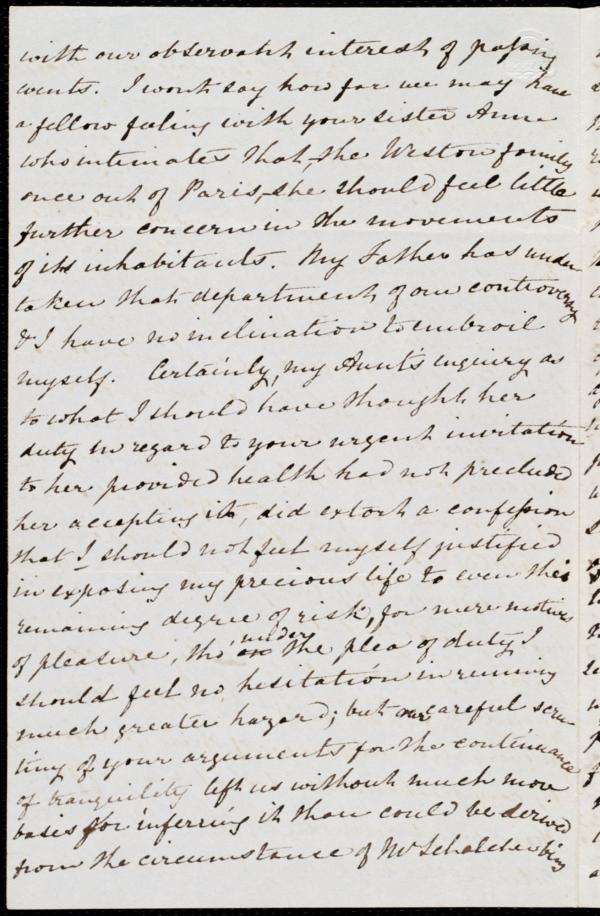 with our observant interest of passing
events. I wont say how far we may have
a fellow feeling with your sister Anne
who intimates that, the Weston family
once out of Paris, she should feel little
further concern in the movements
of its inhabitants. My Father has under
taken that department of our controversy
& I have no inclination to embroil
myself. Certainly, my Aunt's inquiry as
to what I should have thought her
duty in regard to your urgent invitation
to her provided health had not precluded
her accepting it, did extort a confession
that I should not feel myself justified
in exposing my precious life to even the
remaining degree of risk, for mere motives
of pleasure, tho' under the plea of duty I
should feel no hesitation in running
much greater hazard; but our careful scru-
tiny of your arguments for the continuance
of tranquility left us without much more
basis for inferring it than could be derived
from the circumstance of Mr Schölcher being